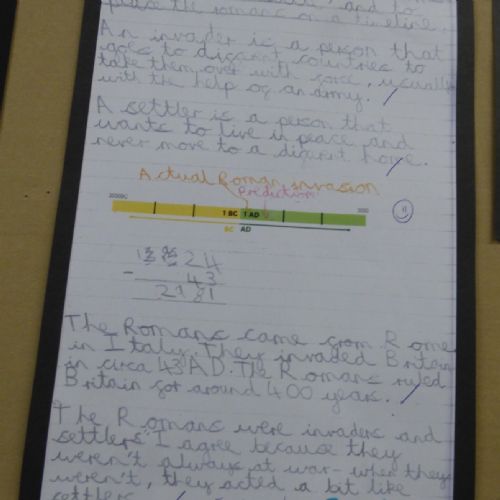 and to
please the romans on a timeline.
An invader is a person that
goes to diffarent countries to
take them over with force, usually
with the help of an army.
A settler is a person that
wants to live in peace and
never move to a diffrent home.
Actual Roman invasion
Prediction
2000BC 1 BC 1 AD 2000
BC AD
2024
- 43
2181
The Romans came from Rome
in Italy. They invaded Britain
in circa 43 AD. The Romans ruled
Britain for around 400 years.
The Romans were invaders and
settlers. I agree because they
weren't always at war - when they
weren't, they acted a bit like
settlers